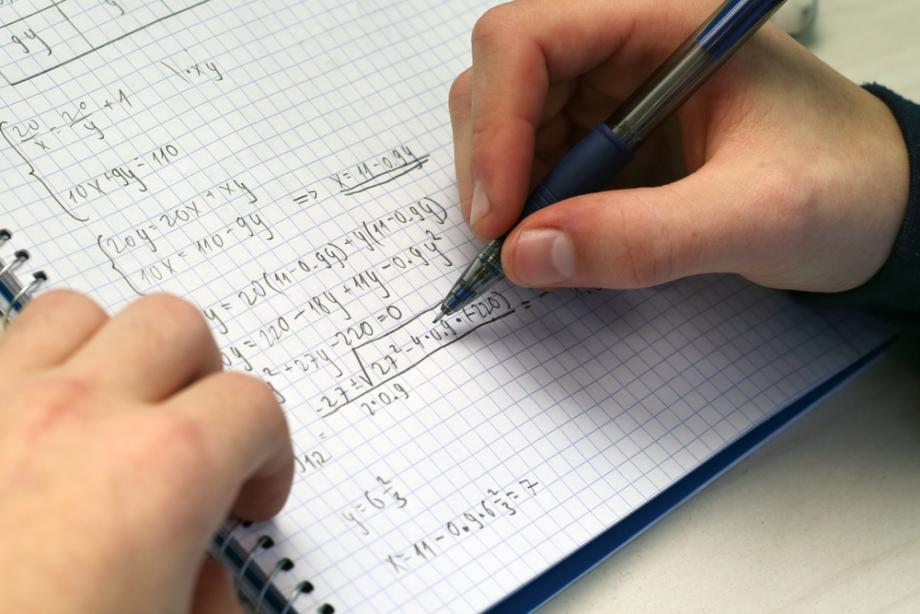 9y y
20/x = 20/y + 1 \·xy
10x+9y=110
20y=20x+xy
10x=110-9y => x=11-0.9y
y=20(11-0.9y)+y(11-0.9y)
0y=220-18y+11y-0.9y²
²+27y-220=0
-27±√27²-4·0.9·(-220) = -
2·0.9
12 =
y=6 2/3
x=11-0.9·6 2/3=7